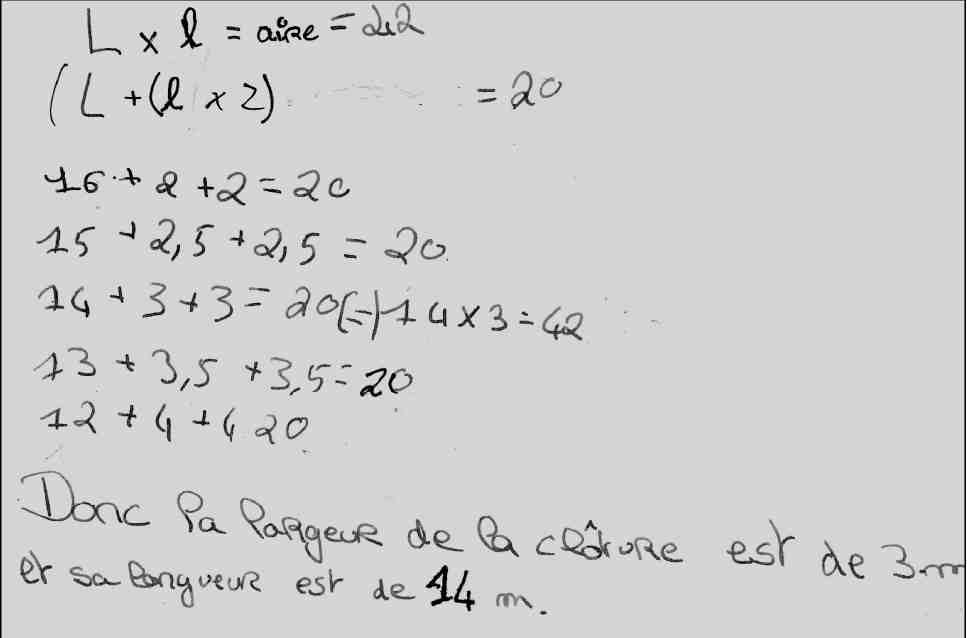 L x l = aire = 42
(L + (l x 2) = 20
16 + 2 + 2 = 20
15 + 2,5 + 2,5 = 20
14 + 3 + 3 = 20 (=) 14 x 3 = 42
13 + 3,5 + 3,5 = 20
12 + 4 + 4 20
Donc la largeur de la clôture est de 3 m
et sa longueur est de 14 m.